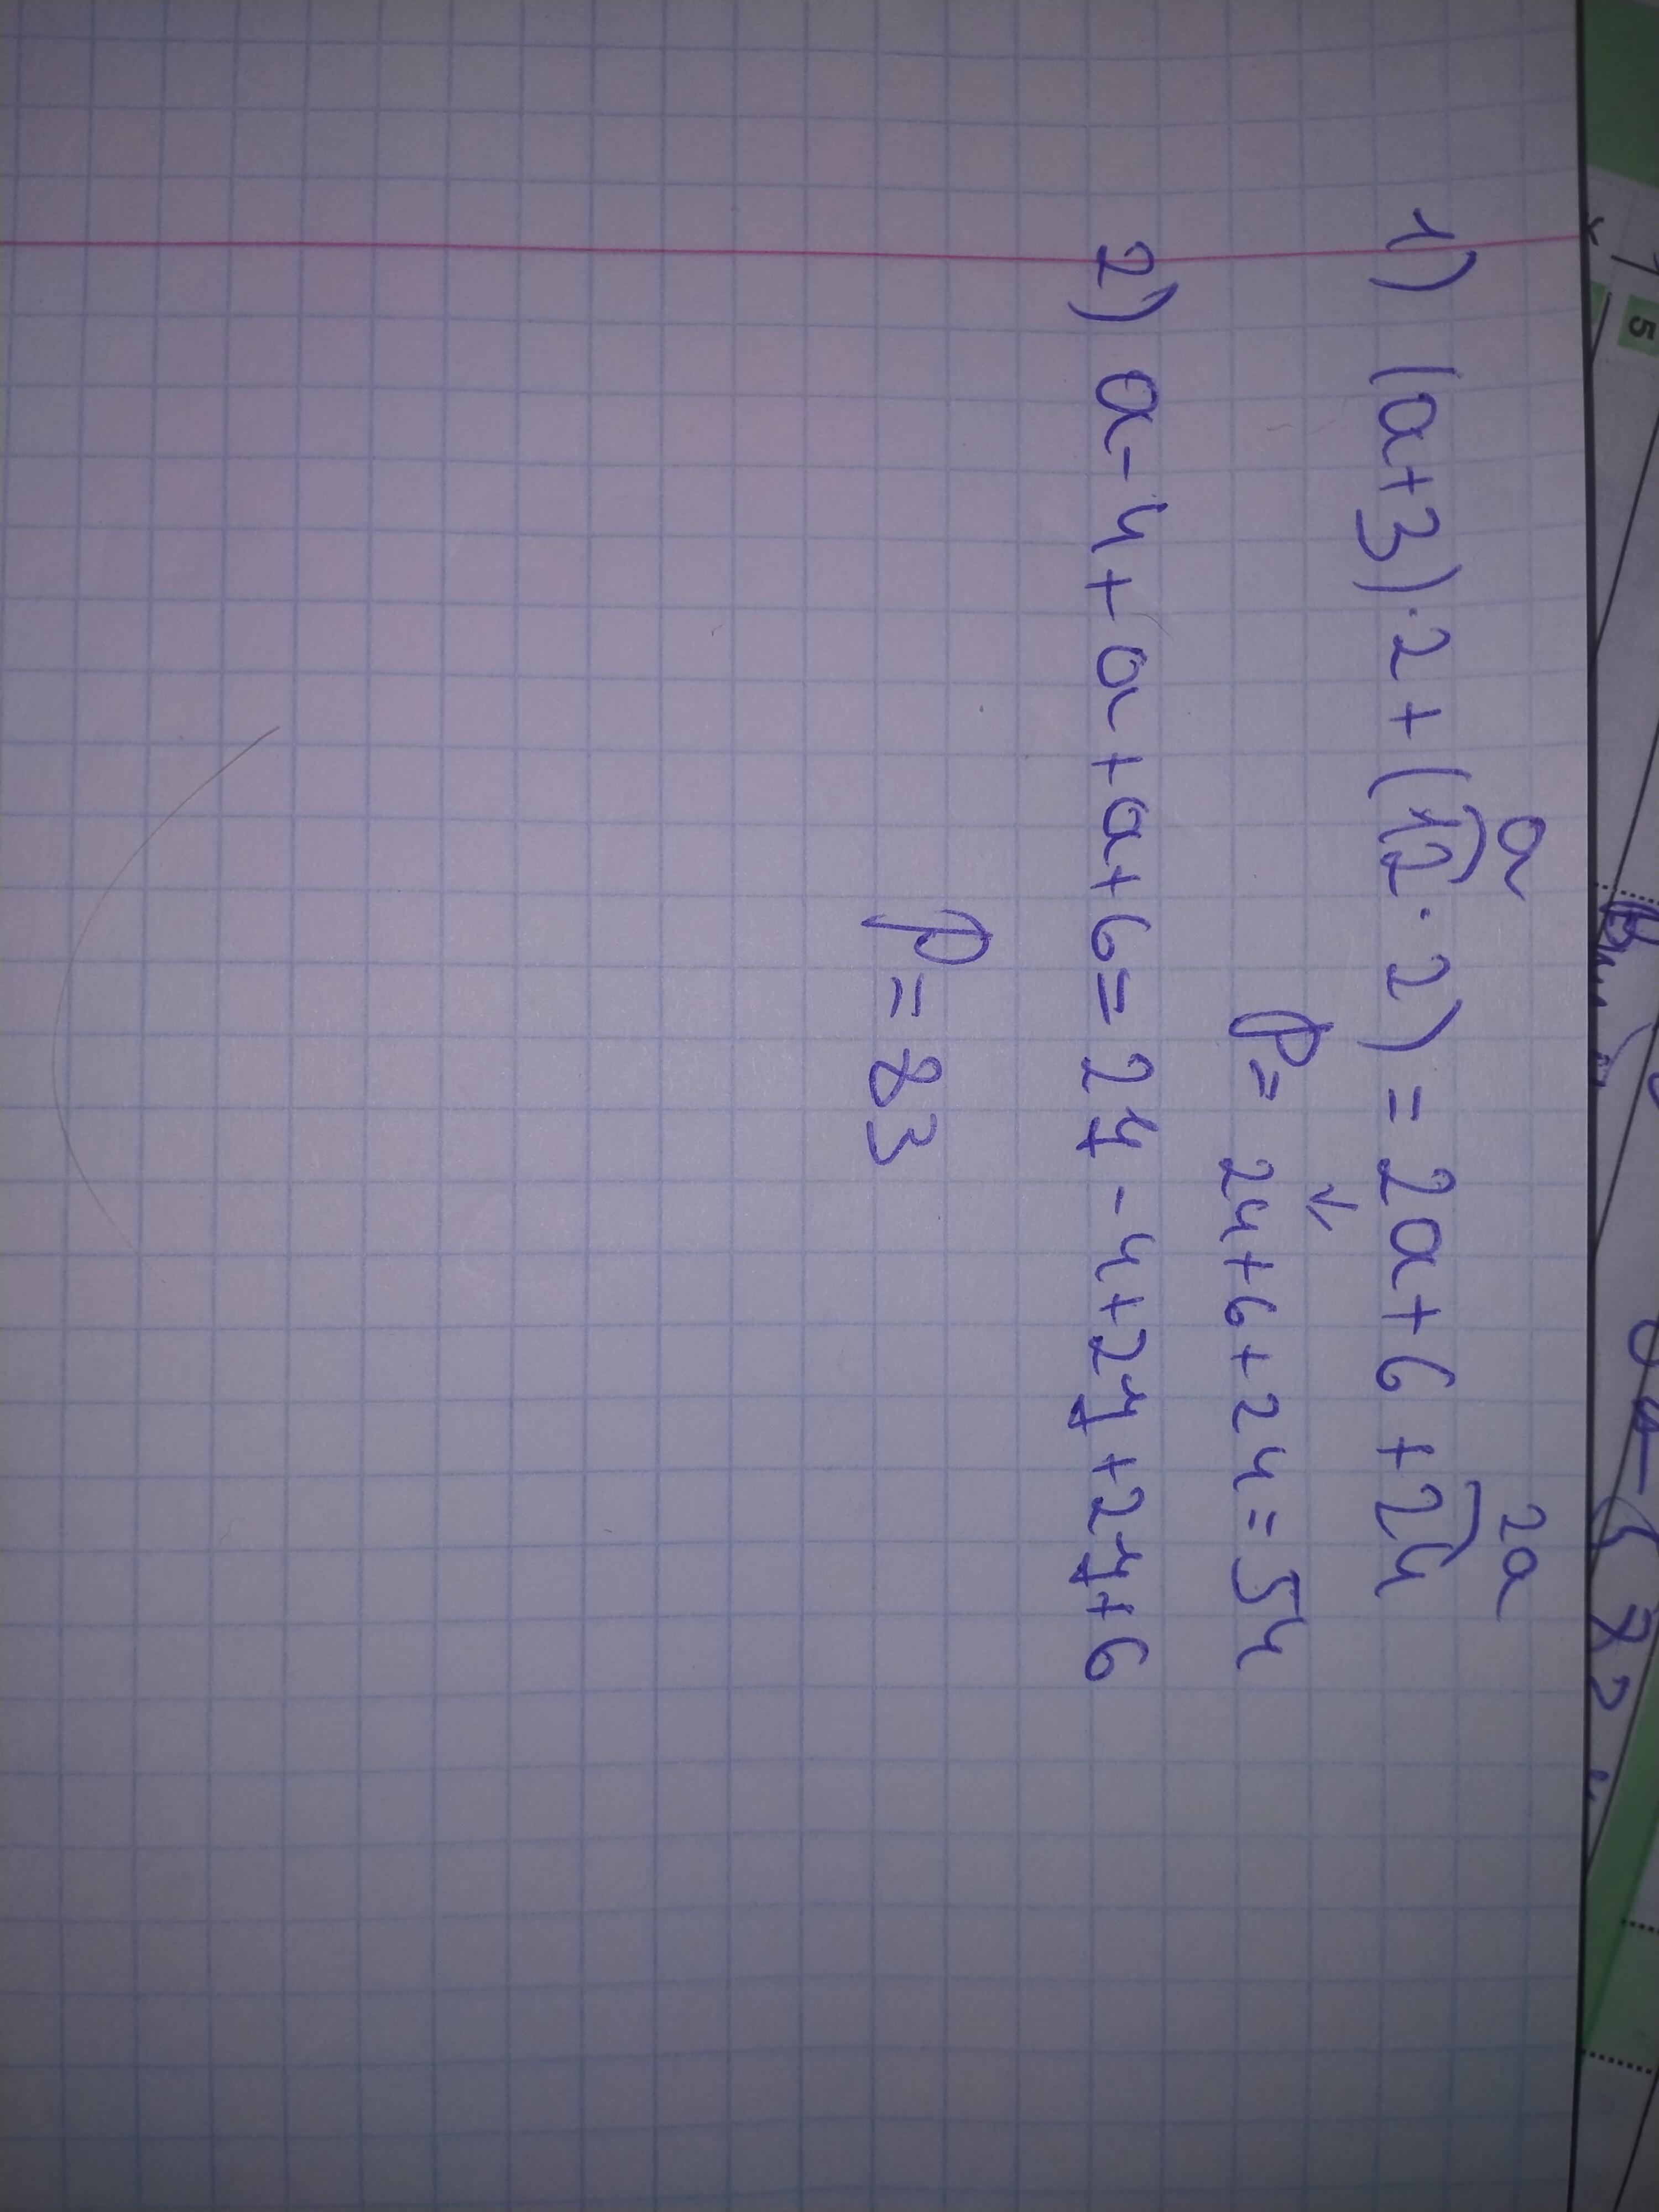 a 2a
1) (a+3)·2+(12·2)=2a+6+24
P= 24+6+24=54
2) a-4+a+a+6=27-4+27+27+6
P=83
5